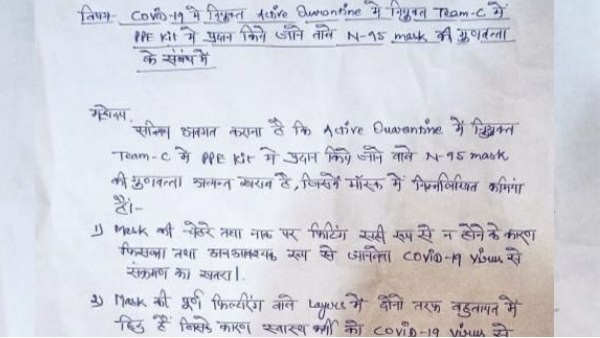 विषय- COVID-19 में नियुक्त Active Quarantine में नियुक्त Team-C में
PPE Kit में प्रदान किये जाने वाले N-95 mask की गुणवत्ता
के संबंध में
महोदय,
सविनय अवगत कराना है कि Active Quarantine में नियुक्त
Team-C में PPE Kit में प्रदान किये जाने वाले N-95 mask
की गुणवत्ता अत्यन्त खराब है, जिसमें मॉस्क में निम्नलिखित कमियां
हैं।-
1) Mask की चेहरे तथा नाक पर फिटिंग सही रूप से न होने के कारण
फिसलना तथा अनावश्यक रूप से जानलेवा COVID-19 virus से
संक्रमण का खतरा।
2) Mask की पूर्ण फिल्टरिंग वाले Layers में दोनो तरफ बहुतायत में
छिद्र हैं जिसके कारण स्वास्थ्य कर्मी को COVID-19 virus से